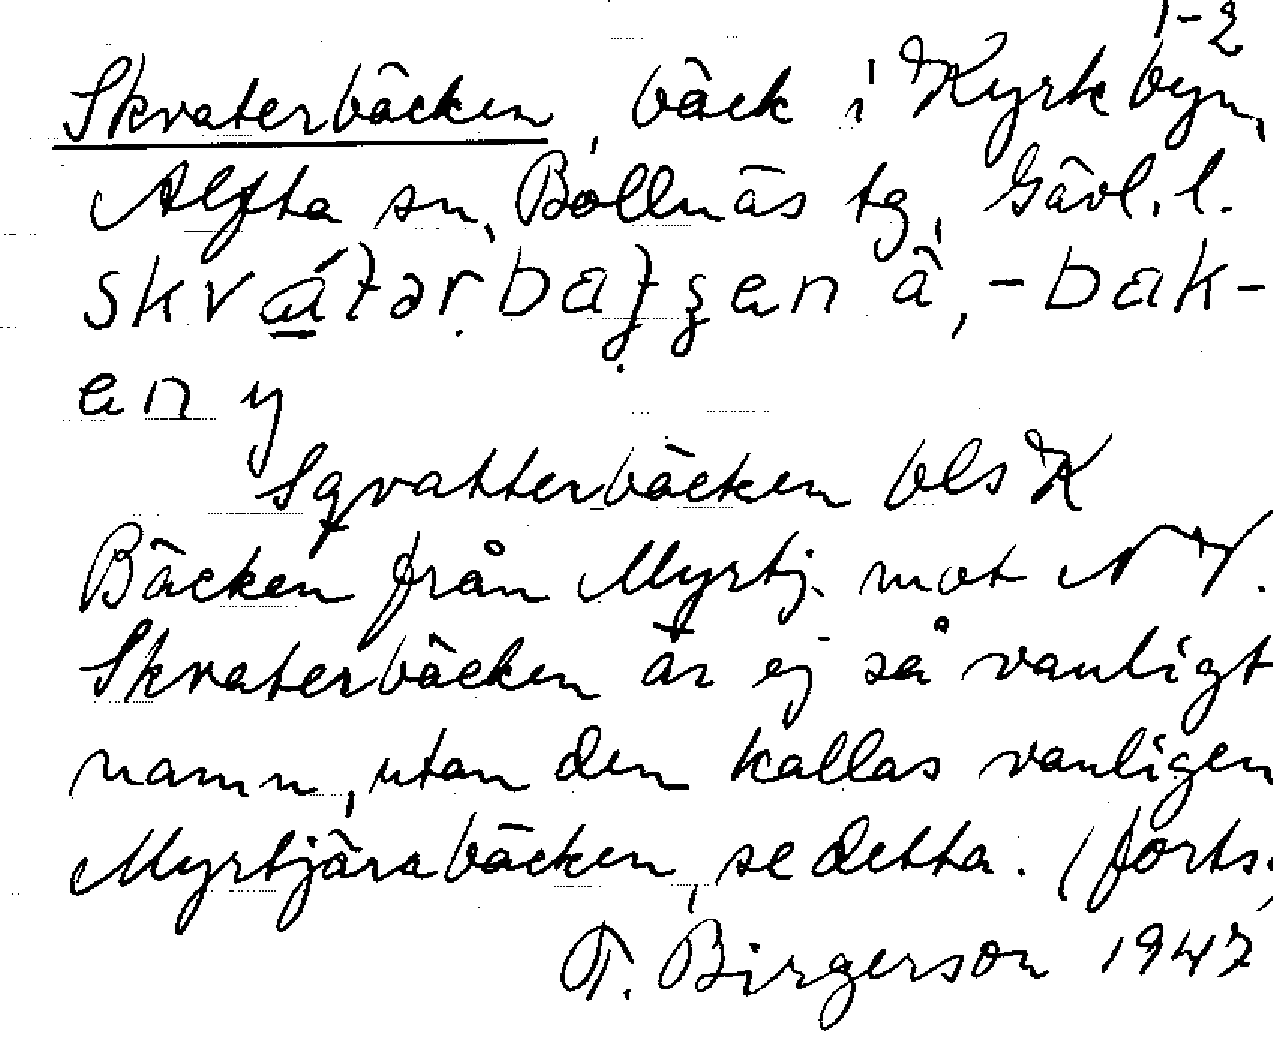 1-2
Skvaterbäcken, bäck i Kyrkbyn,
Alfta sn, Bollnäs tg, Gävl. l.
en y
Sqvatterbäcken bls K
Bäcken från Myrtj. mot NV.
Skvaterbäcken är ej så vanligt
namn, utan den kallas vanligen
Myrtjärabäcken, se detta. (forts.)
T. Birgerson 1947